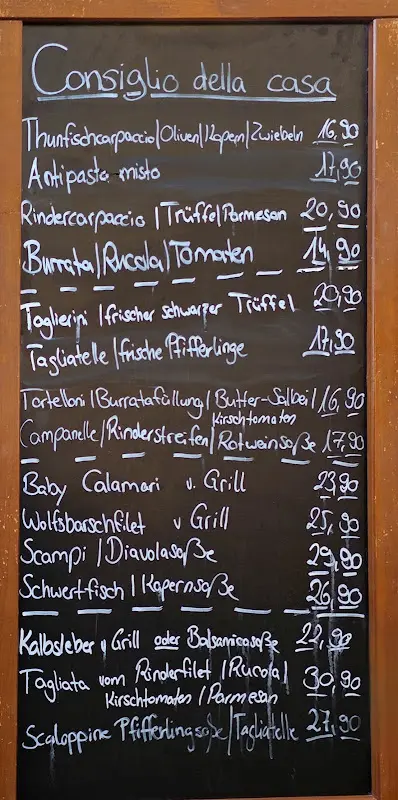 Consiglio della casa
Thunfischcarpaccio/Oliven/Kapern/Zwiebeln 16,90
Antipasta misto 17,90
Rindercarpaccio / Trüffel/Parmesan 20,90
Burrata/Rucola/Tomaten 14,90
Taglierini / frischer schwarzer Trüffel 20,90
Tagliatelle / frische Pfifferlinge 17,90
Tortelloni / Burratafüllung / Butter-Salbei / 16,90
Kirschtomaten
Campanelle / Rinderstreifen / Rotweinsoße 17,90
Baby Calamari v. Grill 23,90
Wolfsbarschfilet v Grill 25,90
Scampi / Diavolasoße 29,90
Schwertfisch / Kapernsoße 26,90
Kalbsleber v Grill oder Balsamicosoße 22,90
Tagliata vom Rinderfilet / Rucola / 30,90
Kirschtomaten / Parmesan
Scaloppine Pfifferlingsoße/Tagliatelle 27,90